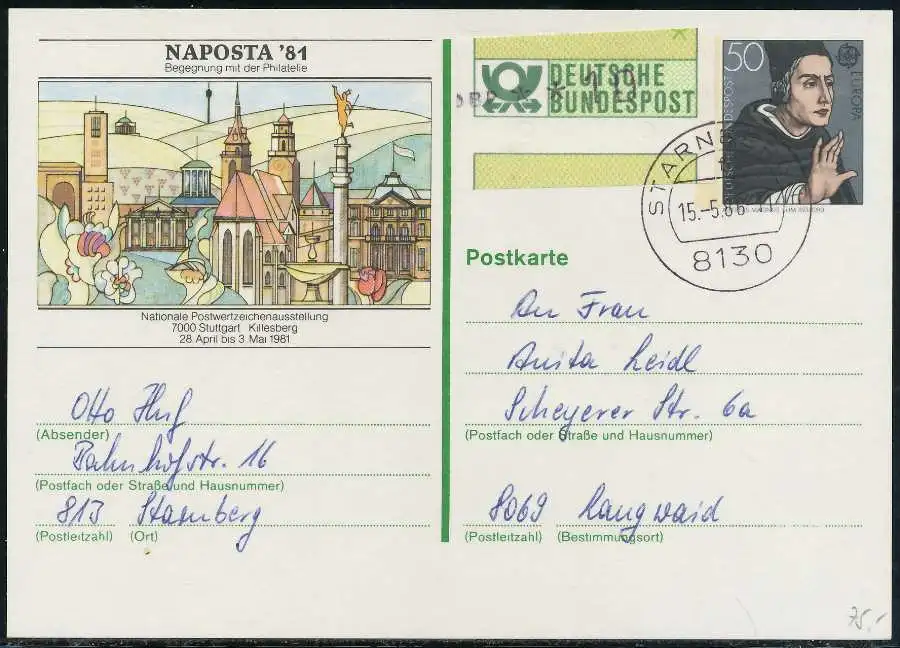 NAPOSTA '81
Begegnung mit der Philatelie
Nationale Postwertzeichenausstellung
7000 Stuttgart Killesberg
28. April bis 3. Mai 1981
DEUTSCHE
BUNDESPOST
50
EUROPA
DEUTSCHE BUNDESPOST
STARN
15.-5.86
8130
Postkarte
An Frau
Anita Leidl
Scheyerer Str. 6a
(Postfach oder Straße und Hausnummer)
8069 Langwaid
(Postleitzahl) (Bestimmungsort)
Otto Huf
(Absender)
Bahnhofstr. 16
(Postfach oder Straße und Hausnummer)
813 Starnberg
(Postleitzahl) (Ort)
75,-